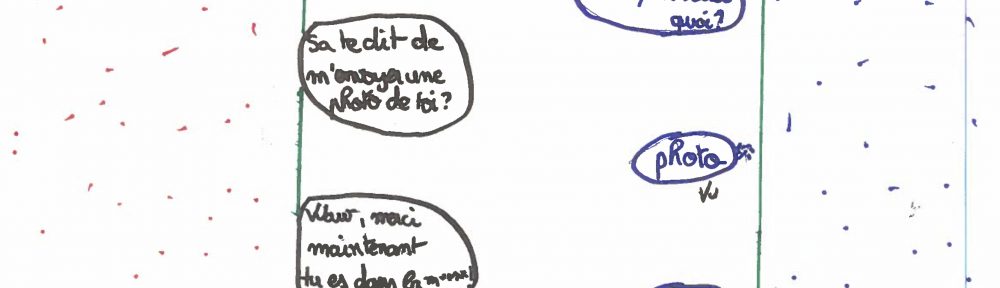 quoi?
Sa te dit de
m'envoyer une
photo de toi?
photo
Vu
merci
maintenant
tu es dans la m****!